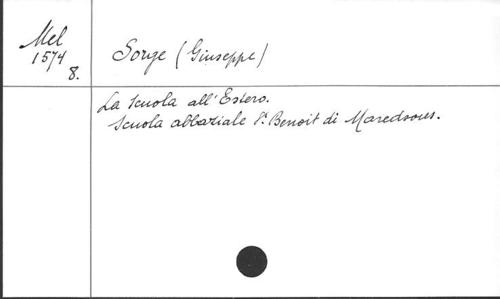 Mel
1574
8.
Sorge (Giuseppe)
La Scuola all'Estero.
Scuola abbaziale St Benoit di Maredsous.